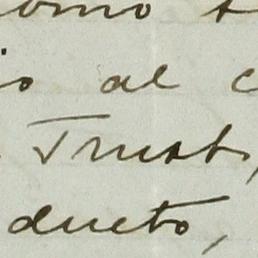 omo
io al c
Trust,
ducto,